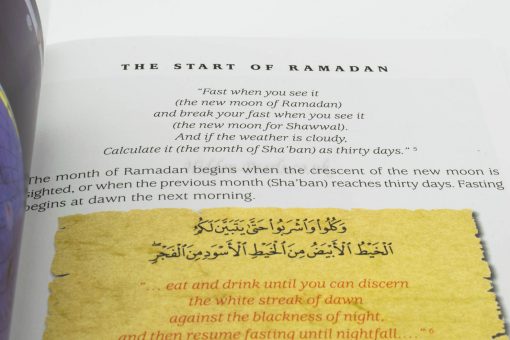 THE START OF RAMADAN
“Fast when you see it
(the new moon of Ramadan)
and break your fast when you see it
(the new moon for Shawwal).
And if the weather is cloudy,
Calculate it (the month of Sha’ban) as thirty days.” 5
The month of Ramadan begins when the crescent of the new moon is
sighted, or when the previous month (Sha’ban) reaches thirty days. Fasting
begins at dawn the next morning.
وَكُلُوا وَاشْرَبُوا حَتَّىٰ يَتَبَيَّنَ لَكُمُ
الْخَيْطُ الْأَبْيَضُ مِنَ الْخَيْطِ الْأَسْوَدِ مِنَ الْفَجْرِ
“... eat and drink until you can discern
the white streak of dawn
against the blackness of night,
and then resume fasting until nightfall....” 6